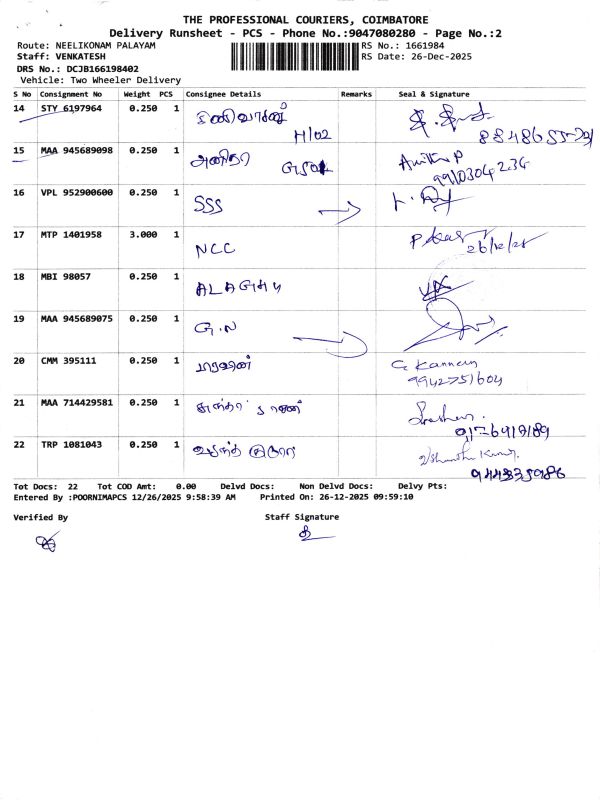 THE PROFESSIONAL COURIERS, COIMBATORE
Delivery Runsheet - PCS - Phone No.:9047080280 - Page No.:2
Route: NEELIKONAM PALAYAM RS No.: 1661984
Staff: VENKATESH RS Date: 26-Dec-2025
DRS No.: DCJB166198402
Vehicle: Two Wheeler Delivery
S No Consignment No Weight PCS Consignee Details Remarks Seal & Signature
14 STY 6197964 0.250 1
H/02
15 MAA 945689098 0.250 1 அனிதா
9910304236
16 VPL 952900600 0.250 1 SSS
17 MTP 1401958 3.000 1 NCC
26/12/25
18 MBI 98057 0.250 1 ALAGHU
19 MAA 945689075 0.250 1 G.N
20 CMM 395111 0.250 1 G Kannan
9942751604
21 MAA 714429581 0.250 1
22 TRP 1081043 0.250 1
Tot Docs: 22 Tot COD Amt: 0.00 Delvd Docs: Non Delvd Docs: Delvy Pts:
Entered By :POORNIMAPCS 12/26/2025 9:58:39 AM Printed On: 26-12-2025 09:59:10
Verified By Staff Signature